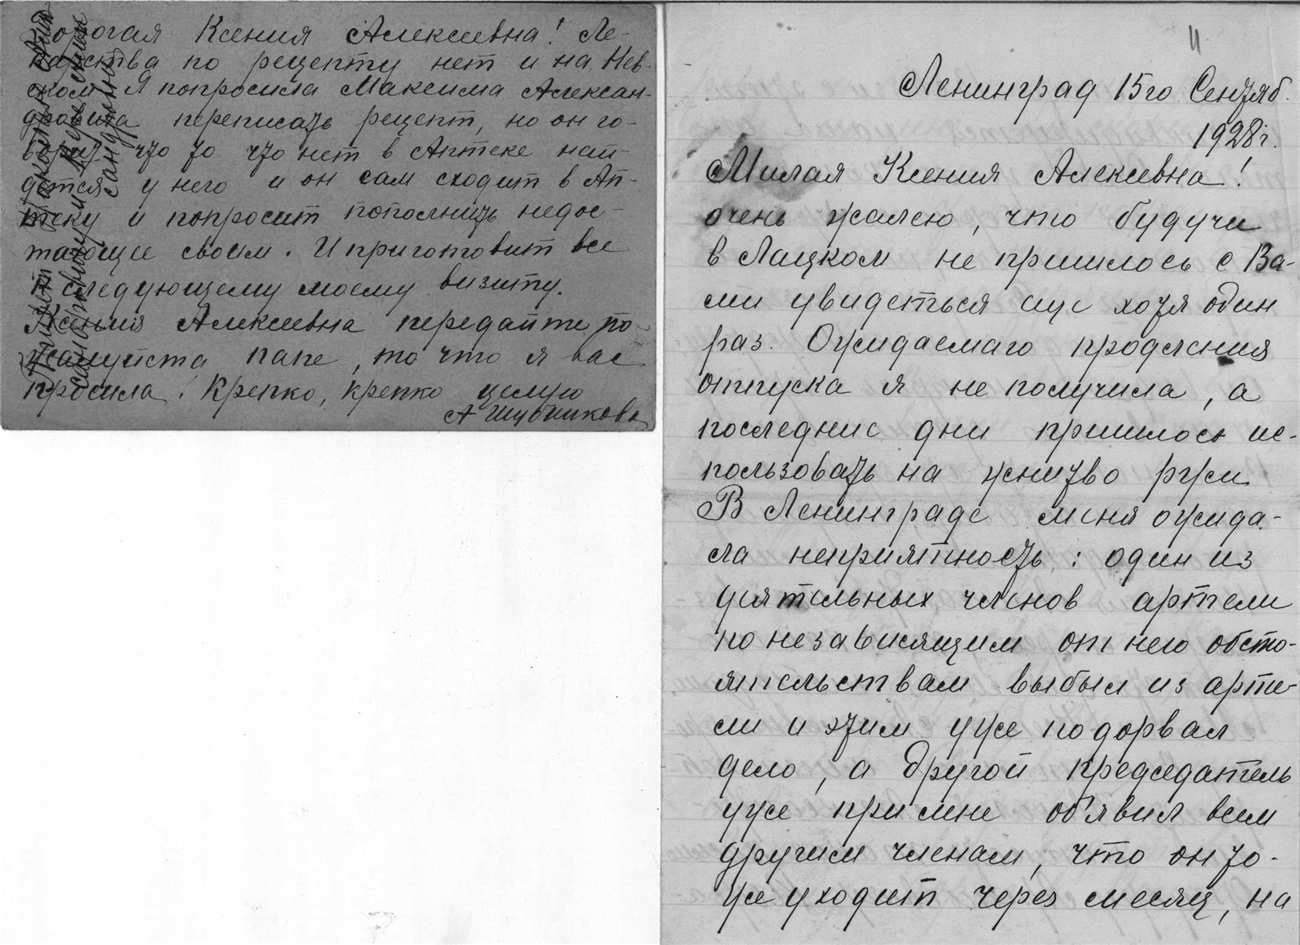 Дорогая Ксения Алексеевна! Ле-
карства по рецепту нет и на Нев-
ском. Я попросила Максима Алексан-
дровича переписать рецепт, но он го-
ворит что то что нет в Аптеке най-
дется у него и он сам сходит в Ап-
теку и попросит пополнить недос-
тающее своим. И приготовит все
к следующему моему визиту.
Ксения Алексеевна передайте по-
жалуйста папе, то что я вас
просила. Крепко, крепко целую
А Шубникова
11
Ленинград 15го Сентяб.
1928 г.
Милая Ксения Алексеевна!
очень жалею, что будучи
в Лацком не пришлось с Ва-
ми увидеться еще хотя один
раз. Ожидаемаго продления
отпуска я не получила, а
последние дни пришлось ис-
пользовать на жнитво ржи
В Ленинграде меня ожида-
ла неприятность: один из
деятельных членов артели
по независящим от него обсто-
ятельствам выбыл из арте-
ли и этим уже подорвал
дело, а другой председатель
уже при мне об'явил всем
другим членам, что он то-
же уходит через месяц, на